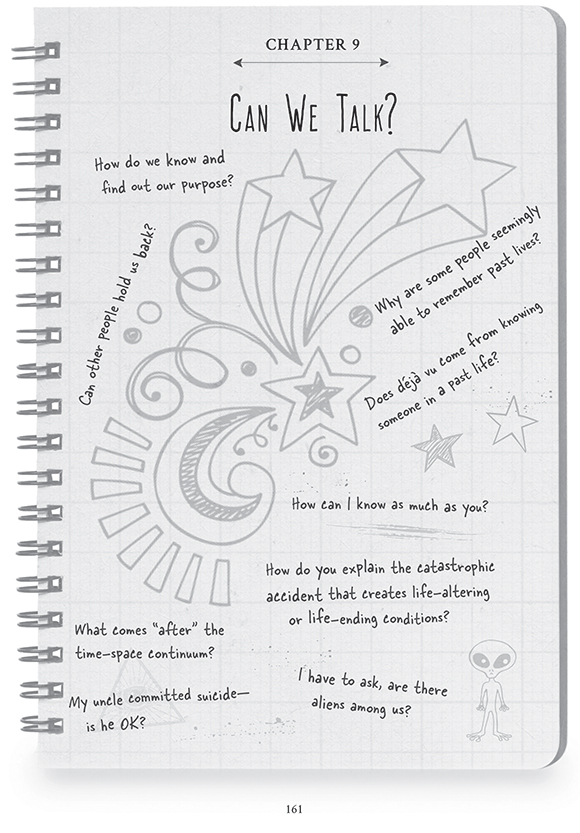 CHAPTER 9
CAN WE TALK?
How do we know and
find out our purpose?
Can other people hold us back?
Why are some people seemingly
able to remember past lives?
Does déjà vu come from knowing
someone in a past life?
How can I know as much as you?
How do you explain the catastrophic
accident that creates life–altering
or life–ending conditions?
What comes “after” the
time–space continuum?
My uncle committed suicide—
is he OK?
I have to ask, are there
aliens among us?
161